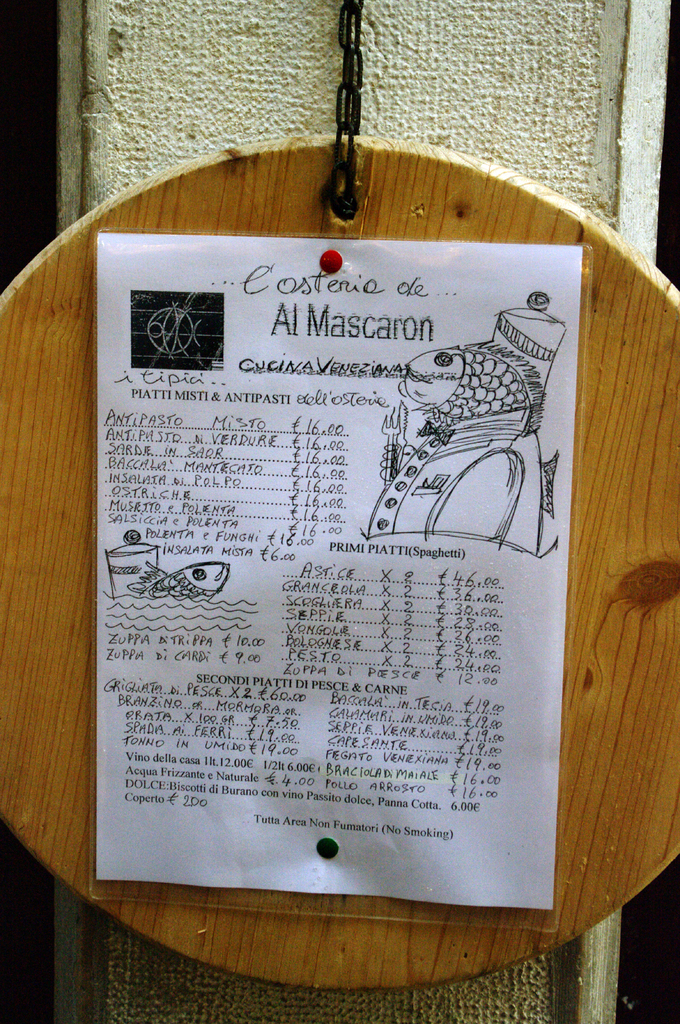 ...L'osteria de...
Al Mascaron
CUCINA VENEZIANA
i tipici...
PIATTI MISTI & ANTIPASTI dell'osteria
ANTIPASTO MISTO € 16.00
ANTIPASTO DI VERDURE € 16.00
SARDE IN SAOR € 16.00
BACCALA' MANTECATO € 16.00
INSALATA DI POLPO € 16.00
OSTRICHE € 16.00
MUSETTO e POLENTA € 16.00
SALSICCIA e POLENTA € 16.00
POLENTA e FUNGHI € 16.00
INSALATA MISTA € 6.00
PRIMI PIATTI(Spaghetti)
ASTICE X 2 € 46.00
GRANCEOLIA X 2 € 36.00
SCOGLIERA X 2 € 30.00
SEPPIE X 2 € 28.00
VONGOLE X 2 € 26.00
BOLOGNESE X 2 € 24.00
PESTO X 2 € 24.00
ZUPPA DI PESCE € 12.00
ZUPPA DI TRIPPA € 10.00
ZUPPA DI CARDI € 9.00
SECONDI PIATTI DI PESCE & CARNE
GRIGLIATA DI PESCE X2 € 60.00
BRANZINO OR MORMORA OR
ORATA X 100 GR € 7.50
SPADA AI FERRI € 19.00
TONNO IN UMIDO € 19.00
BACCALA' IN TECIA € 19.00
CALAMARI IN UMIDO € 19.00
SEPPIE VENEXIANA € 19.00
CAPESANTE € 19.00
FEGATO VENEXIANA € 19.00
BRACIOLA DI MAIALE € 16.00
POLLO ARROSTO € 16.00
Vino della casa 1lt.12.00€ 1/2lt 6.00€
Acqua Frizzante e Naturale € 4.00
DOLCE:Biscotti di Burano con vino Passito dolce, Panna Cotta. 6.00€
Coperto € 200
Tutta Area Non Fumatori (No Smoking)